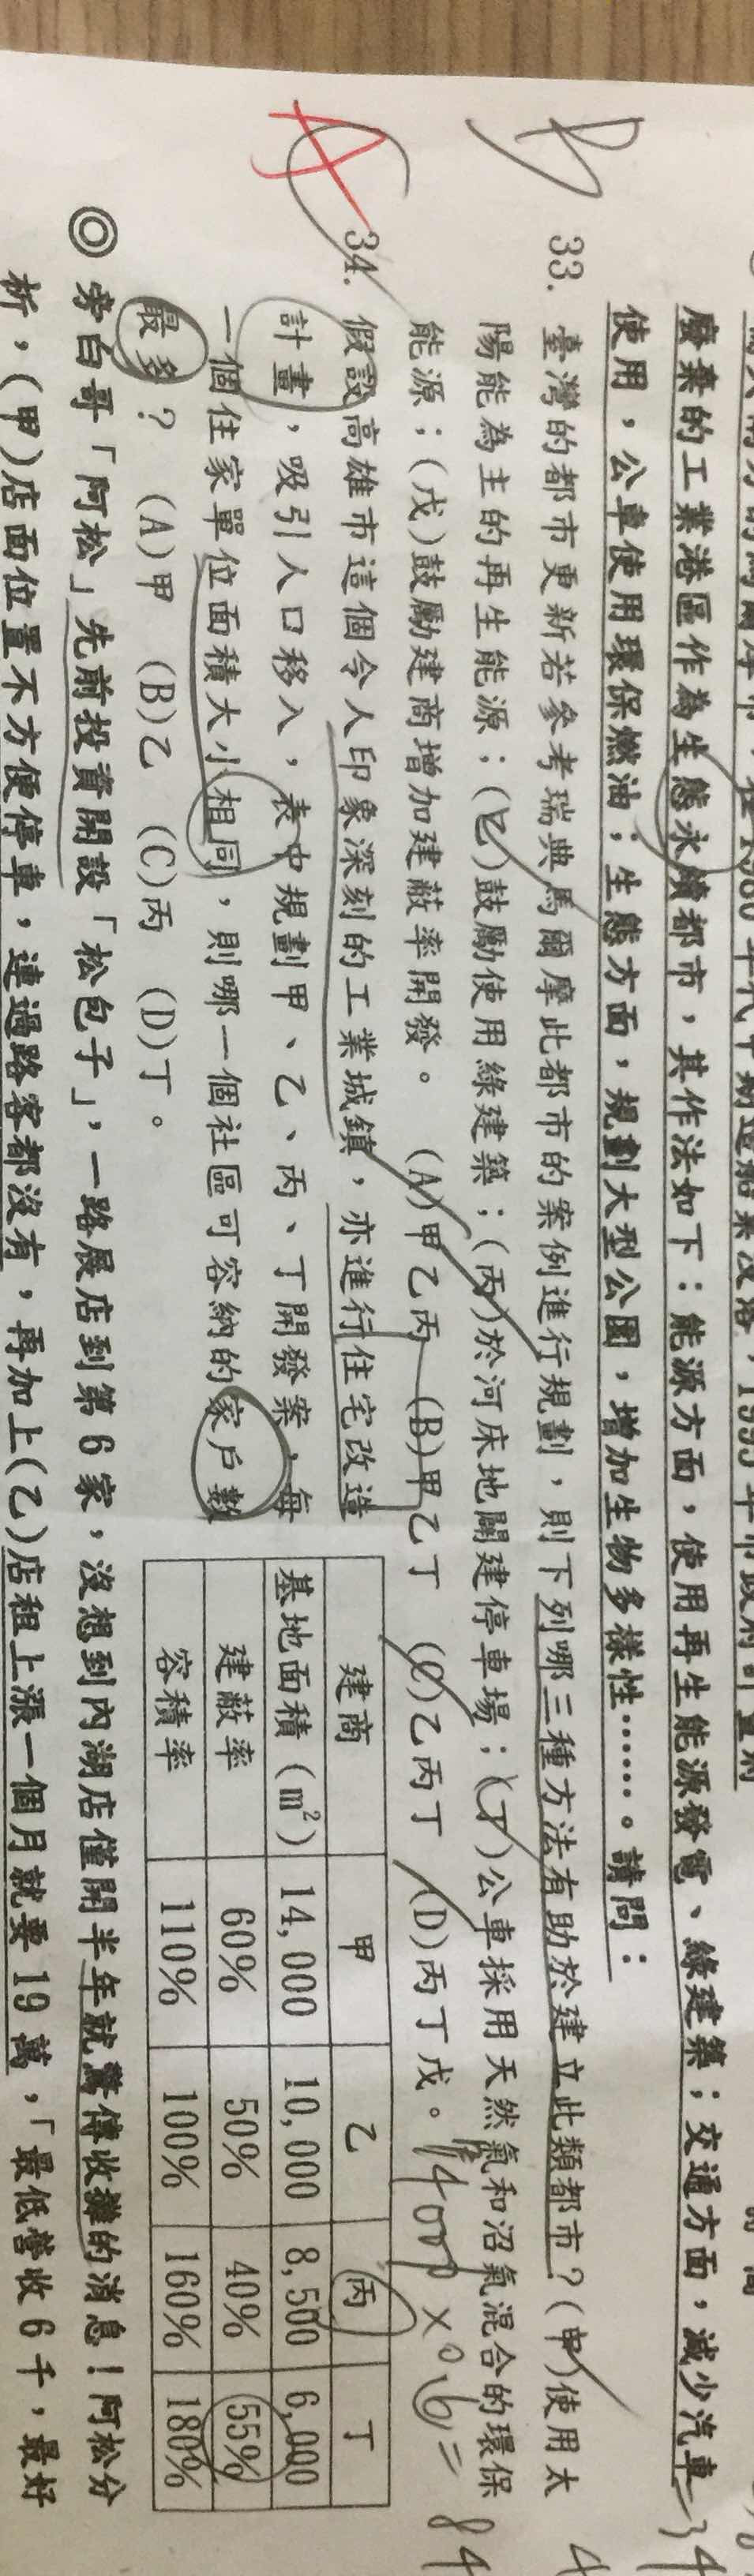 廢棄的工業港區作為生態永續都市，其作法如下：能源方面，使用再生能源發電、綠建築；交通方面，減少汽車
使用，公車使用環保燃油；生態方面，規劃大型公園，增加生物多樣性……。請問：
33. 臺灣的都市更新若參考瑞典馬爾摩此都市的案例進行規劃，則下列哪三種方法有助於建立此類都市？(甲)使用太
陽能為主的再生能源；(乙)鼓勵使用綠建築；(丙)於河床地闢建停車場；(丁)公車採用天然氣和沼氣混合的環保
能源；(戊)鼓勵建商增加建蔽率開發。 (A)甲乙丙 (B)甲乙丁 (C)乙丙丁 (D)丙丁戊。
B
34. 假設高雄市這個令人印象深刻的工業城鎮，亦進行住宅改造
計畫，吸引人口移入，表中規劃甲、乙、丙、丁開發案，每
一個住家單位面積大小相同，則哪一個社區可容納的家戶數
最多？ (A)甲 (B)乙 (C)丙 (D)丁。
建商 甲 乙 丙 丁
基地面積(m²) 14,000 10,000 8,500 6,000
建蔽率 60% 50% 40% 55%
容積率 110% 100% 160% 180%
◎ 旁白哥「阿松」先前投資開設「松包子」，一路展店到第6家，沒想到內湖店僅開半年就驚傳收攤的消息！阿松分
析，(甲)店面位置不方便停車，連過路客都沒有，再加上(乙)店租上漲一個月就要19萬，「最低營收6千，最好